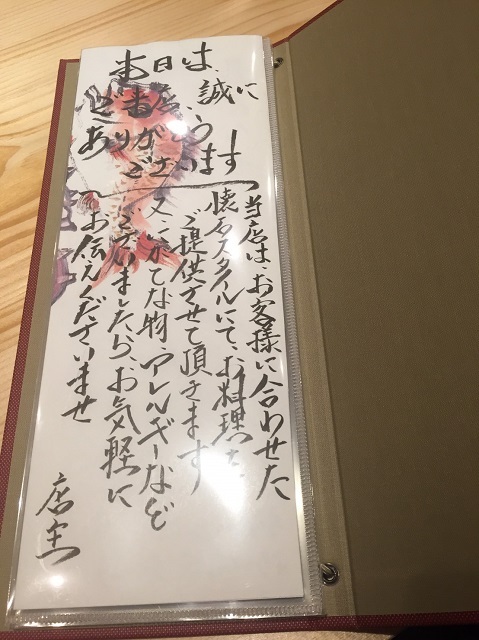 本日は、
ご来店、誠に
ありがとう
ございます
当店は、お客様に合わせた
懐石スタイルにて、お料理を
ご提供させて頂きます
又、にがてな物、アレルギーなど
ございましたら、お気軽に
お伝えくださいませ
店主